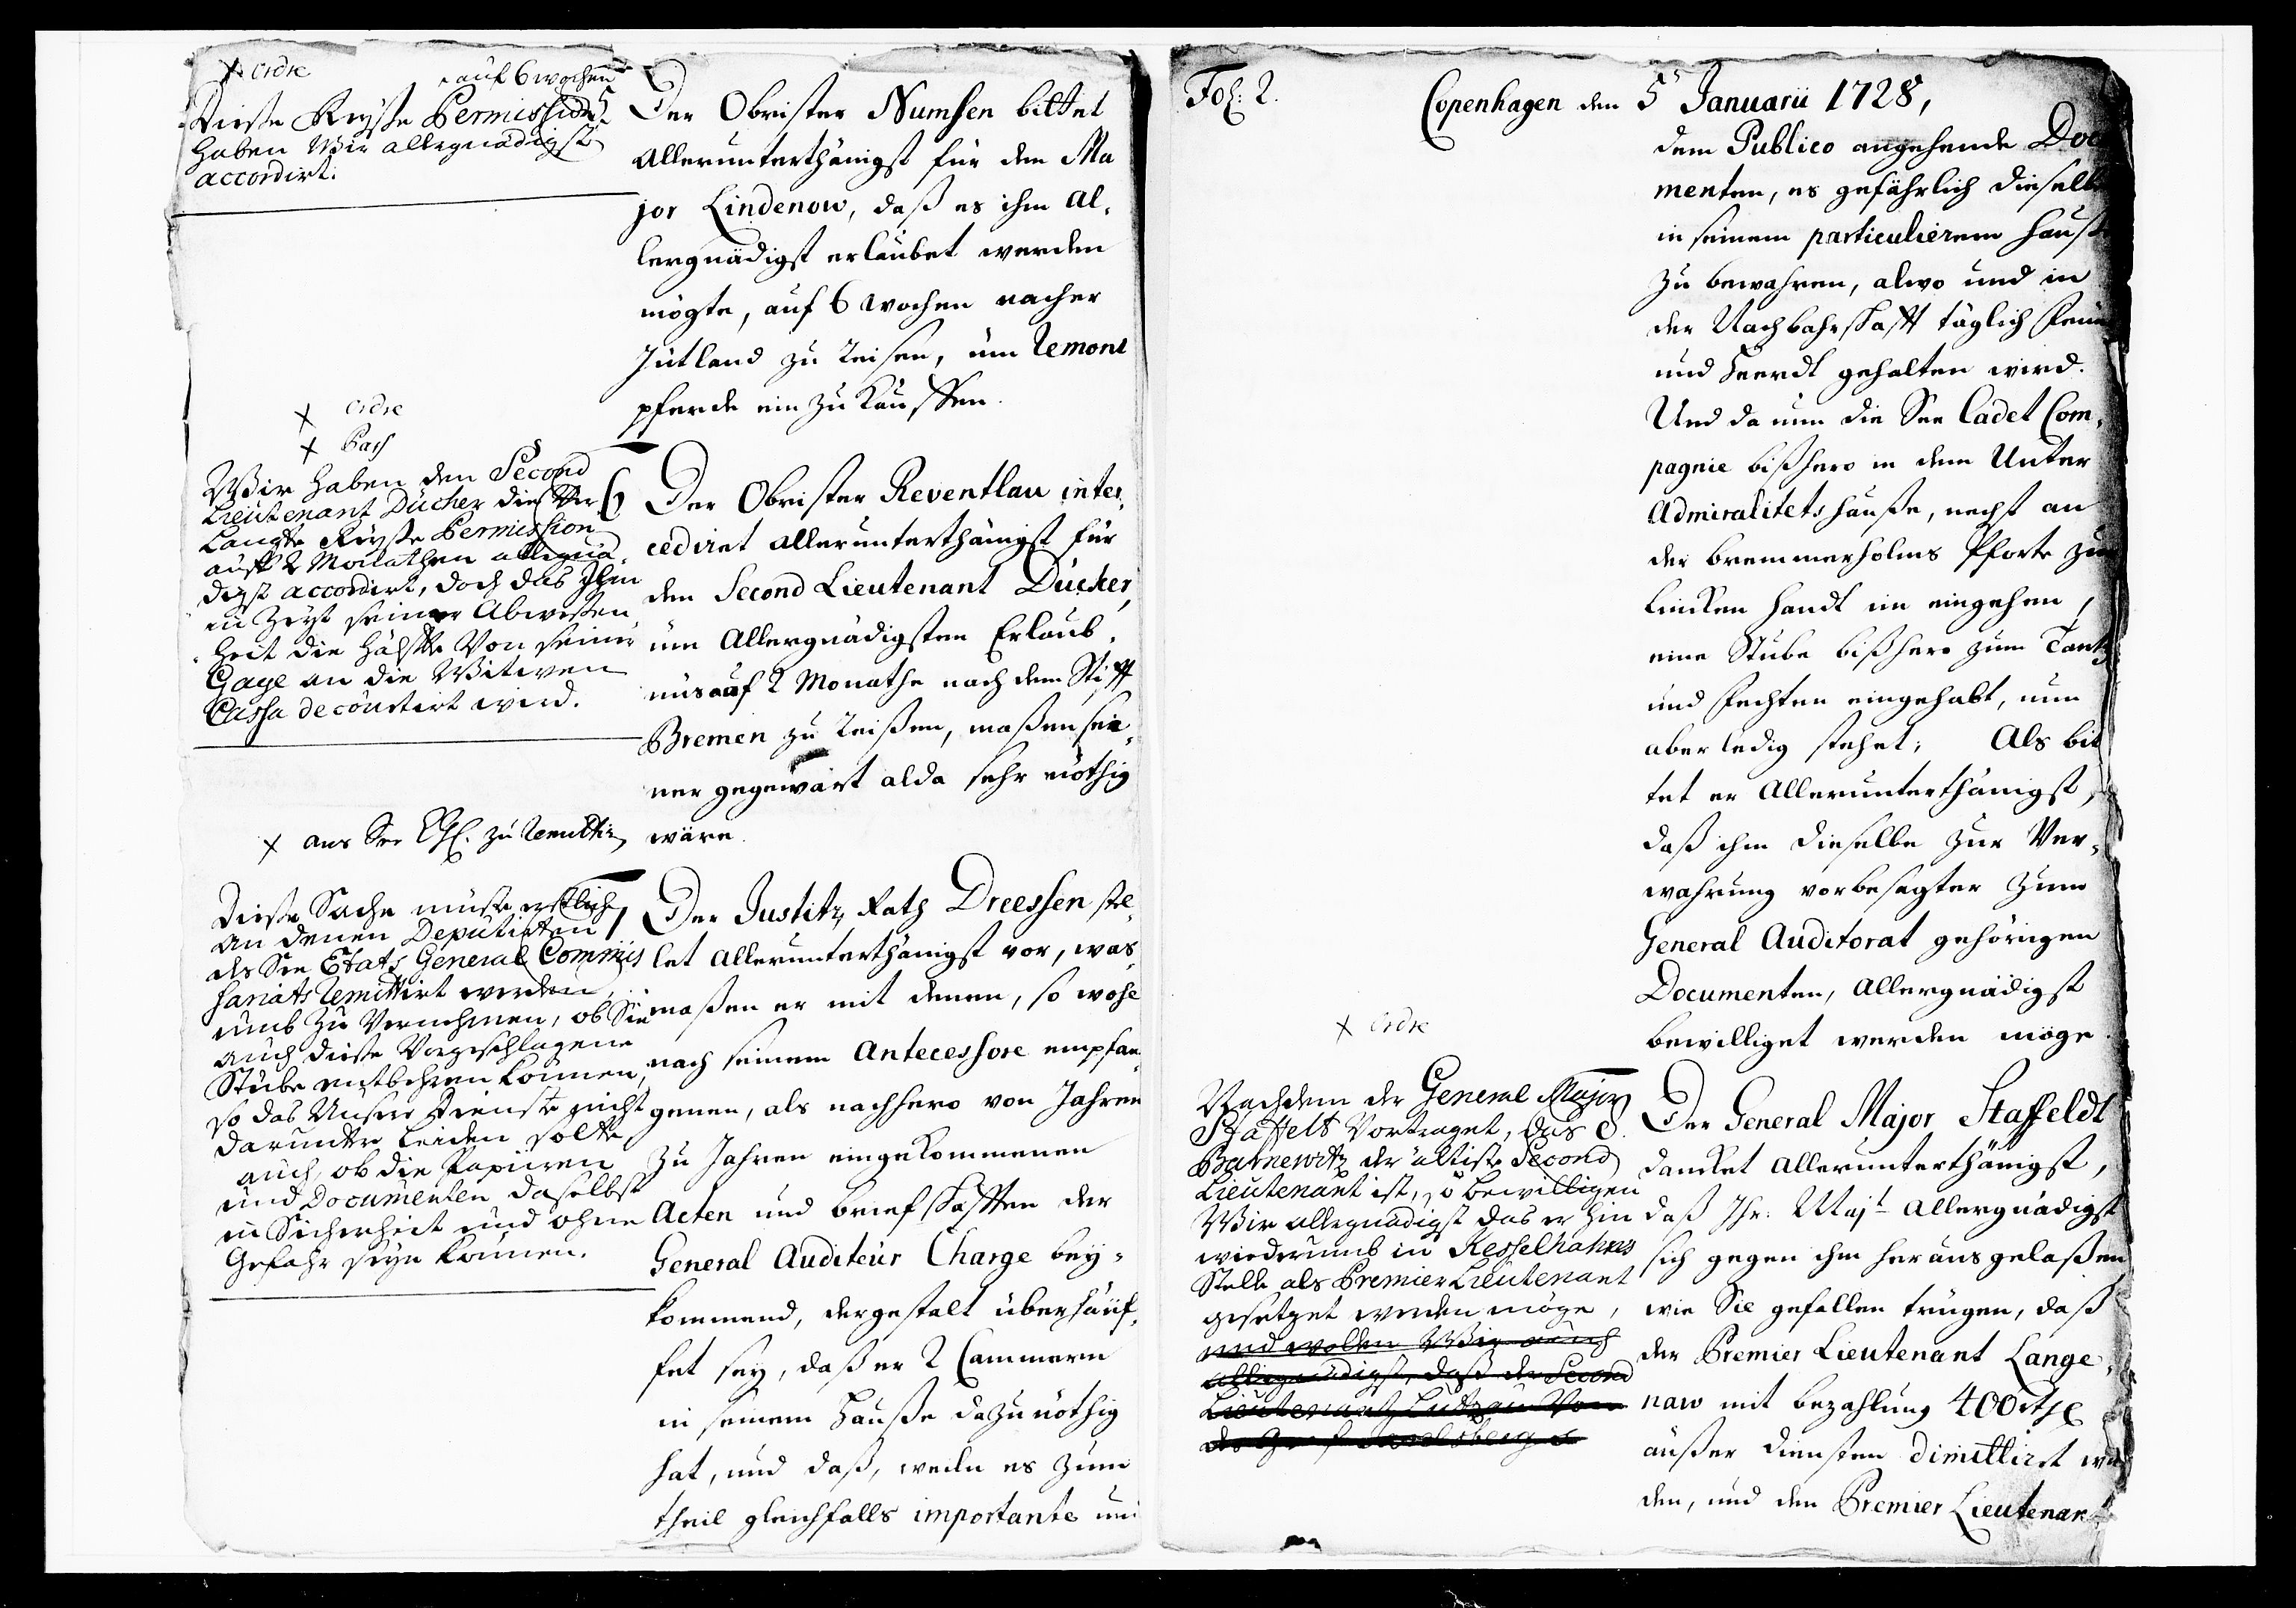 x ordre
auf 6 wochen
Diesse Reysse Permission
haben Wir allergnädigst
accordirt.
5.
Der Obrister Numsen bittet
allerunterthänigst für dem Ma
jor Lindenow, daß es ihm al-
lergnädigst erlaubet werden
mögte, auf 6 wochen nacher
Jütland zu reisen, um Remont
pferde ein zu kauffen.
x ordre
x Pass
Wir haben den Second
Lieutenant Dücher die Ver
langte Reysse Permission
auff 2 Monathen allergnä
digst accordirt, doch das Ihm
in Zeyt seiner Abwessen
heit die Hälffte Von seiner
Gage an die Witwen
Cassa decourtirt wird.
6
Der Obrister Reventlau inter-
cediret allerunterthänigst für
den Second Lieutenant Dücker,
um Allergnädigsten Erlaub-
nüs auf 2 Monathe nach dem Stifft
Bremen zu reißen, maßen sei-
ner gegenwart alda sehr nöthig
wäre.
x ans See zu remittir
Diesse Sache muss erstlich
an denen Deputirten
des See Etats General Commis
sariats remittirt werden,
umb zu Vernehmen, ob Sie
auch diesse Vorgeschlagene
Stube entbehren können,
so das Unsere Dienste nicht
darunter leiden solte
auch, ob die Papiren
und Documenten daselbst
in Sicherheit und ohne
Gefahr seyn können.
7
Der Justitz Rath Dreessen stel-
let allerunterthänigst vor, was
maßen er mit denen, so wohl
nach seinem Antecessore empfan-
genen, als nachhero von Jahren
zu Jahren eingekommenen
Acten und briefschafften der
General Auditeur Charge bey-
kommend, dergestalt überhäuf-
fet sey, daß er 2 Cammern
in seinem Hauße dazu nöthig
hat, und daß, weiln es zum
theil gleichfalls importante und
Fol: 2.
Copenhagen den 5 Januarii 1728,
dem Publico angehende Doc
menten, es gefährlich dieselbe
in seinem particulieren Hause
zu bewahren, alwo und in
der Nachbahrschafft täglich Feur
und Heerdt gehalten wird.
Und da nun die See Cadet Com-
pagnie bißhero in dem Unter
Admiralitets hauße, nechst an
der bremmerholms Pforte zur
lincken handt im eingehen,
eine Stube bißhero zum Tantz
und fechten eingehabt, nun
aber ledig stehet; Als bit
tet er Allerunterthänigst,
daß ihm dieselbe zur Ver-
wahrung vorbesagter zum
General Auditorat gehörigen
Documenten, Allergnädigst
bewilliget werden möge.
x ordre
Nachdem der General Major
Staffelt Vortraget, das
Barnewitz der ältiste Second
Lieutenant ist, so bewilligen
Wir allergnädigst das er hin
wiederumb in Kesselhahns
Stelle als Premier Lieutenant
gesetzet werden möge,
und wollen Wir auch
allergnädigst, daß der Second
Lieutenant Lützau Von
8.
Der General Major Staffeldt
dancket Allerunterthänigst,
daß Ihr: Majt Allergnädigst
sich gegen ihm heraus gelaßen
wie Sie gefallen trügen, daß
der Premier Lieutenant Lange-
naw mit bezahlung 400 rthl
außer diensten dimittiret wer
den, und den Premier Lieutenant